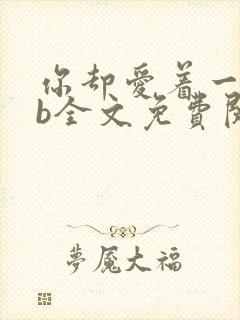 你却爱着一
b全文免費閱
夢魘大福